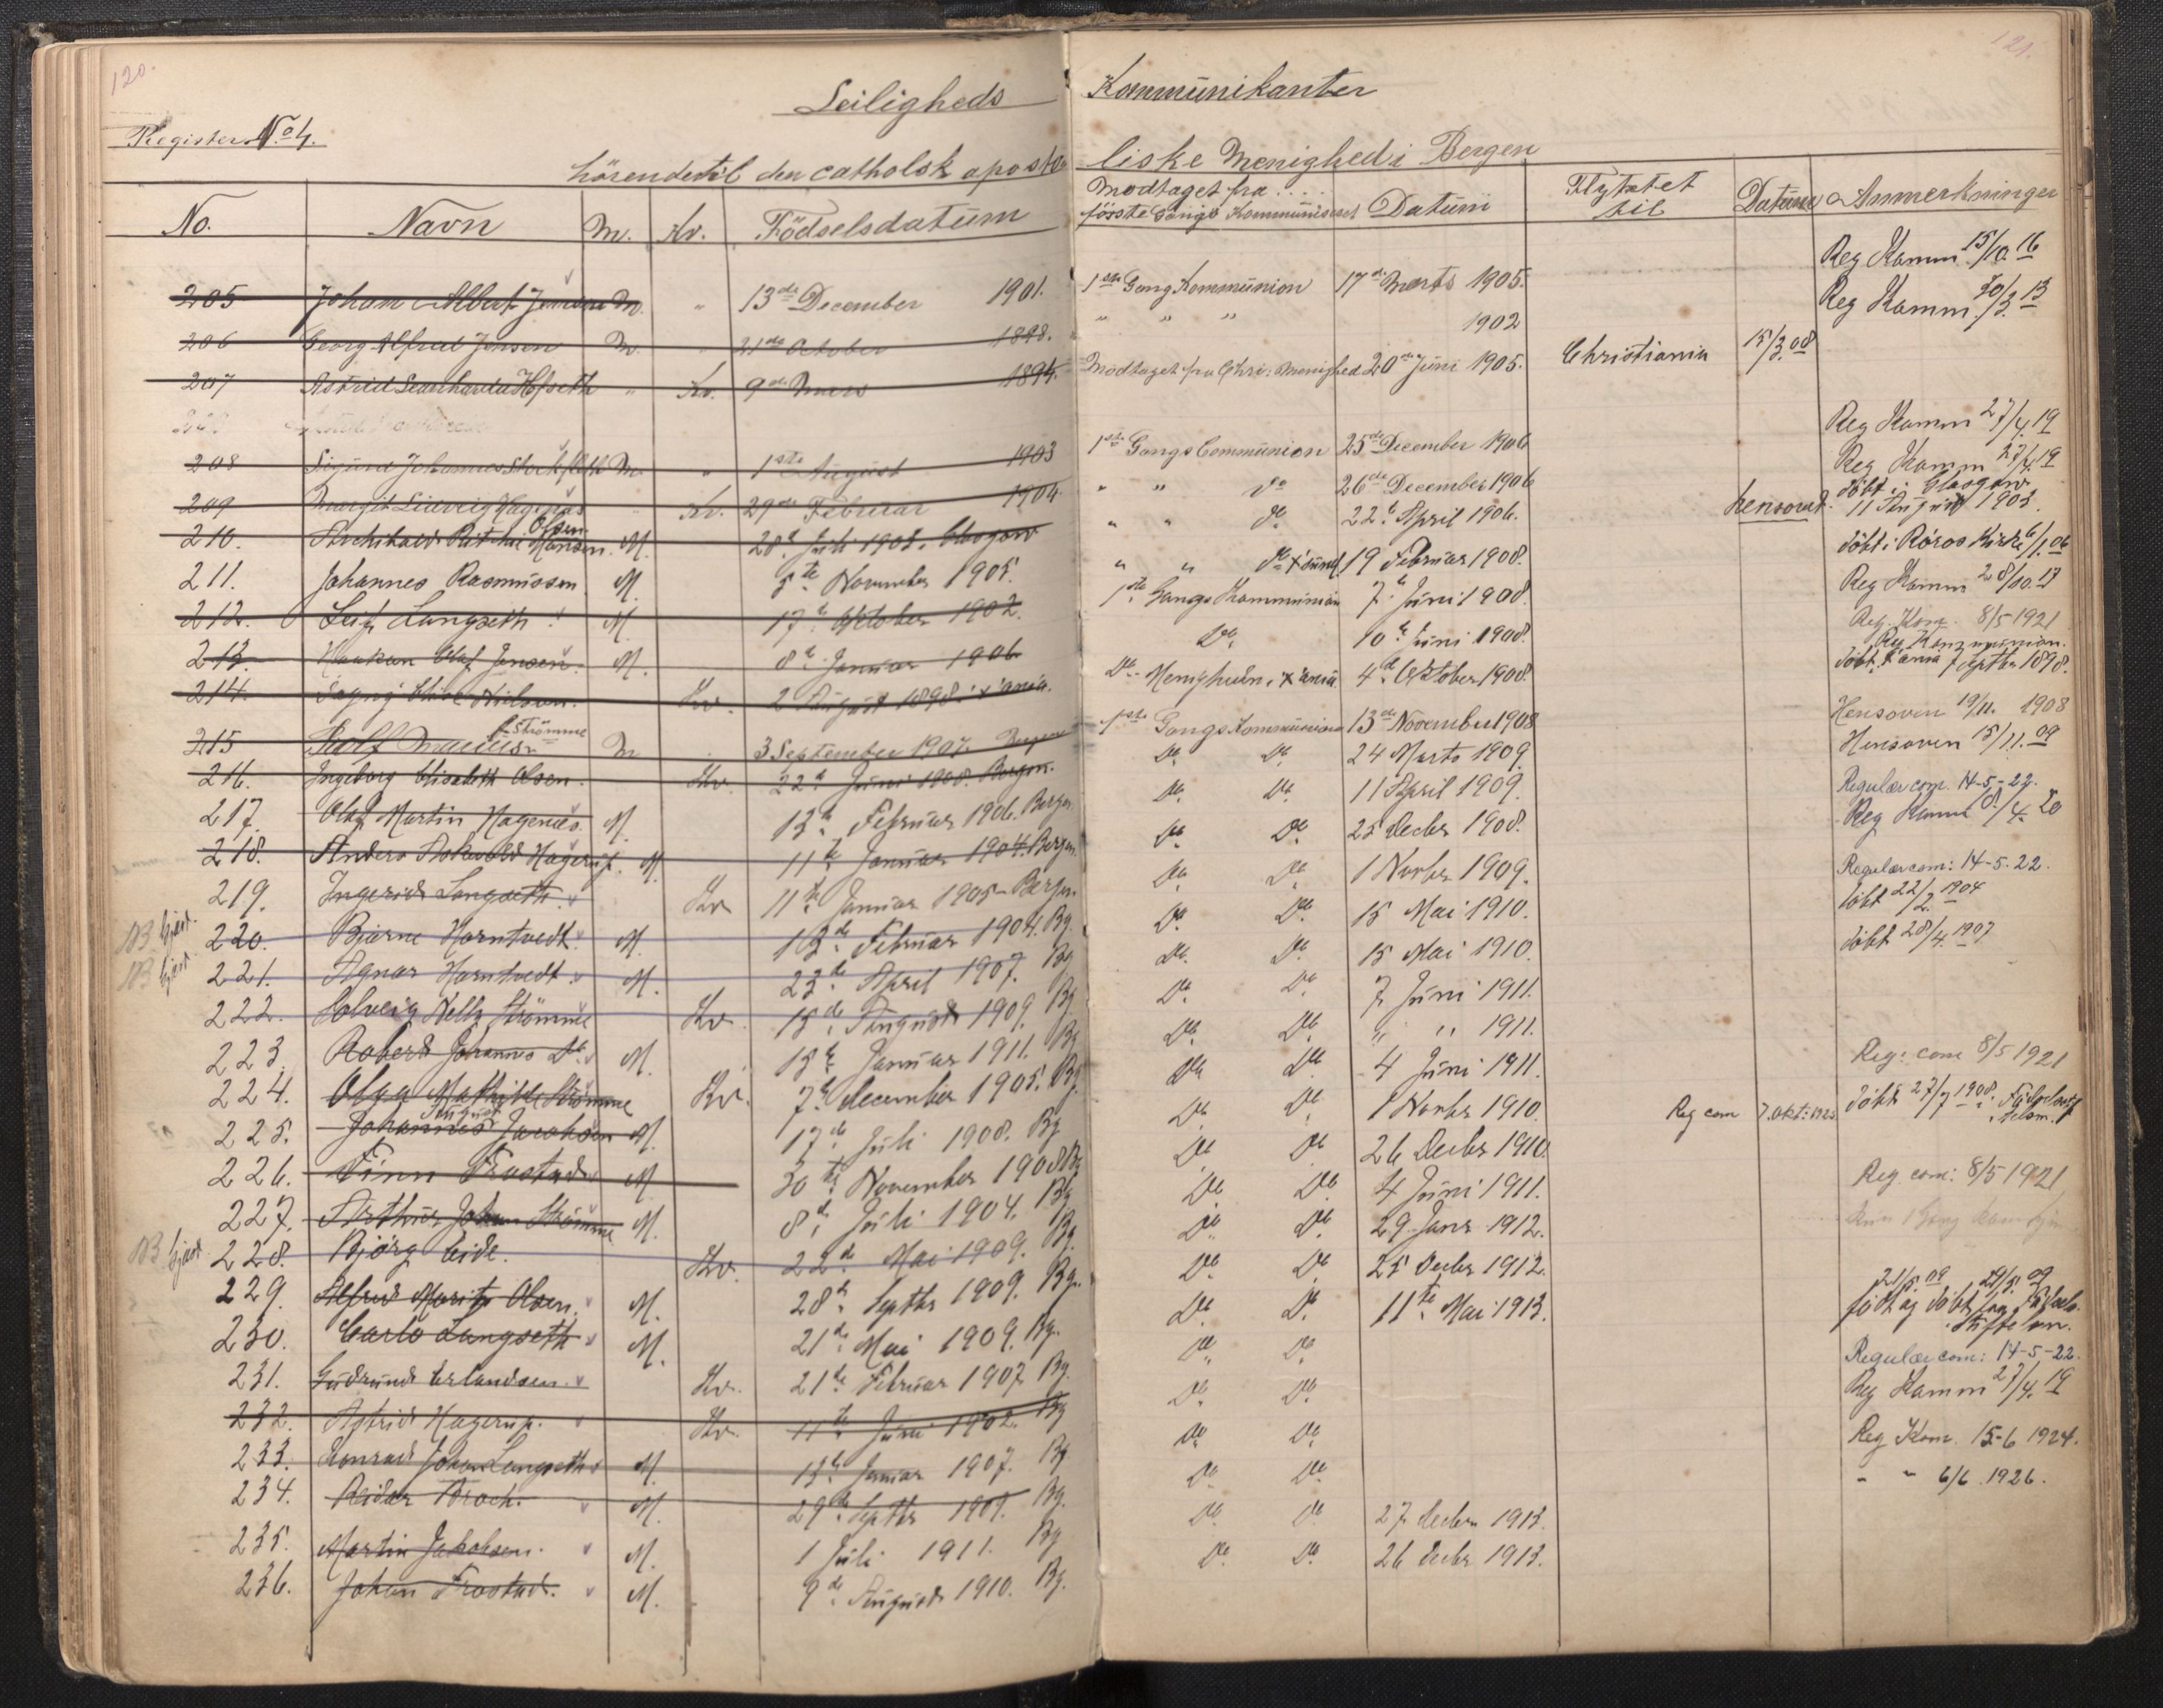 120.
121.
Leiligheds Kommünikanter
Register No 4.
hörende til den catholsk aposto liske Menighed i Bergen
No. Navn M. Kv. Födselsdatum Modtaget fra .... förste Gangs Kommüniseret Datüm Flyttet til Datüm Anmerkninger
205 Johan Albert Jensen M. " 13de December 1901. 1ste Gang Kommünion 17de Marts 1905. Reg Komm. 15/10.16
206 Georg Alfred Jensen M. " 21de October 1898. " " " 1902 Reg Komm. 20/3.13
207 Astrid Leonharda Hofseth " Kv. 9de 1894. Modtaget fra Chri: Menighed 20de Jüni 1905. Christiania 15/3.08
208 Sigurd Johannes M. " 1ste Aügüst 1903 1ste Gangs Communion 25de December 1906 Reg Komm 27/4.19
209 Margit Hagenæs " Kv. 29de Februar 1904 " " do 26de December 1906 Reg Komm 27/4.19
210. Archibald Ritchie Olsen M. 28. Jüli 1903. Glasgow " " do 22. April 1906. hensovet. döbt i Glasgow 11 Aügüst 1903.
211. Johannes Rasmüssen M. 5te November 1905. " " do 19 Februar 1908. döbt i Röros Kirke 6/1.06
212. Leif Langseth M. 17. Oktober 1902. 1ste Gangs Kommünion 7. Jüni 1908. Reg Komm 28/10.17
213. Haakon Olaf Jensen M. 8. Januar 1906 Do. 10. Jüni 1908. Reg. Kom. 8/5 1921
214. Nilsen. Kv. 2 Aügüst 1898. X'ania. Do Menigheden, X'ania 4. Oktober 1908. Reg Kommünion. döbt X'ania 7 Septbr 1898.
215 Rolf Strömme M 3 September 1907. Bergen 1ste Gangs Kommünion 13de November 1908 Hensoven 19/11. 1908
216. Ingeborg Elisabeth Olsen. Kv. 22. Jüni 1908. Bergen. Do Do. 24 Marts 1909. Hensoven 15/11.09
217. Olaf Martin Hagenæs. M. 13. Februar 1906. Bergen. Do. Do. 11 April 1909. Regulær com. 14-5-22.
218. Anders Askvold Hagerup. M. 11te Januar 1904. Bergen. Do. Do. 25 Decbr 1908. Reg Komm /4.20
219. Ingerid Langseth. Kv 11te Januar 1905 Bergen. Do. Do. 1 Novbr 1909. Regulær com: 14-5.22.
220. Bjarne Horntvedt. M. 13de Februar 1904. Bg. Do. Do. 15 Mai 1910. döbt 22/2. 1904
221. Agnar Horntvedt. M. 23de April 1907. Bg Do. Do. 15 Mai 1910. döbt 28/4. 1907
222. Solveig Nelly Strömme Kv. 15de Aügüst 1909. Bg Do. Do. 7 Jüni 1911.
223. Robert Johannes Do. M. 13te Januar 1911. Bg Do. Do. " " 1911.
224. Olga Mathilde Strömme Kv. 7de December 1905. Bg. Do Do. 4 Jüni 1911. Reg: com 8/5 1921
225. Johannes Aügüst Jacobsen M. 17de Jüli 1908. Bg Do. Do. 1 Novbr 1910. Reg com 7. Okt: 1923 döbt 27/7 1908.
226. Finn Frostad M 30te November 1908 Bg Do. Do 26 Decbr 1910.
227. Arthur Johan Strömme M. 8. Jüli 1904. Bg Do. Do. 4 Jüni 1911. Reg. com: 8/5 1921
228. Björg Eide. Kv. 22de Mai 1909. Bg. Do. Do. 29. Janr 1912.
229. Alfred Moritz Olsen. M. 28. Septbr 1909. Bg. Do Do. 25 Decbr 1912.
230. Carlo Langseth M. 21de Mai 1909. Bg. Do. Do. 11te Mai 1913. 21/5 09 født og döbt
231. Gudrund Erlandsen. Kv. 21de Februar 1907 Bg. Do. Do. Regulær com: 14-5-22.
232. Astrid Hagerup. Kv. 11te Juni 1902. Bg Do. Do. Reg Komm 27/4.19
233. Konrad Johan Langseth M. 13. Januar 1907. Bg Do. Do. Reg Kom. 15-6 1924.
234. Reidar Broch. M. 29de Septbr 1909. Bg. Do Do. - " 6/6 1926.
235. Martin Jakobsen. M. 1 Jüli 1911. Bg Do. Do. 27 Decbr 1913.
236. Johan Frostad. M. 9de Aügüst 1910. Bg. Do. Do. 26 Decbr 1913.